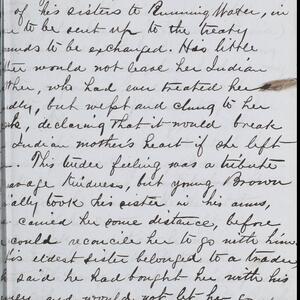 of his sisters to Running Water, in
to be sent up to the treaty
to be exchanged. His little
would not leave her Indian
, who had ever treated her
, but wept and clung to her
, declaring that it would break
Indian mother's heart if she left
. This tender feeling was a tribute
savage kindness, but young Brown
took his sister in his arms,
carried her some distance, before
could reconcile her to go with him.
his eldest sister belonged to a trader
said he had bought her with his
and would not let her